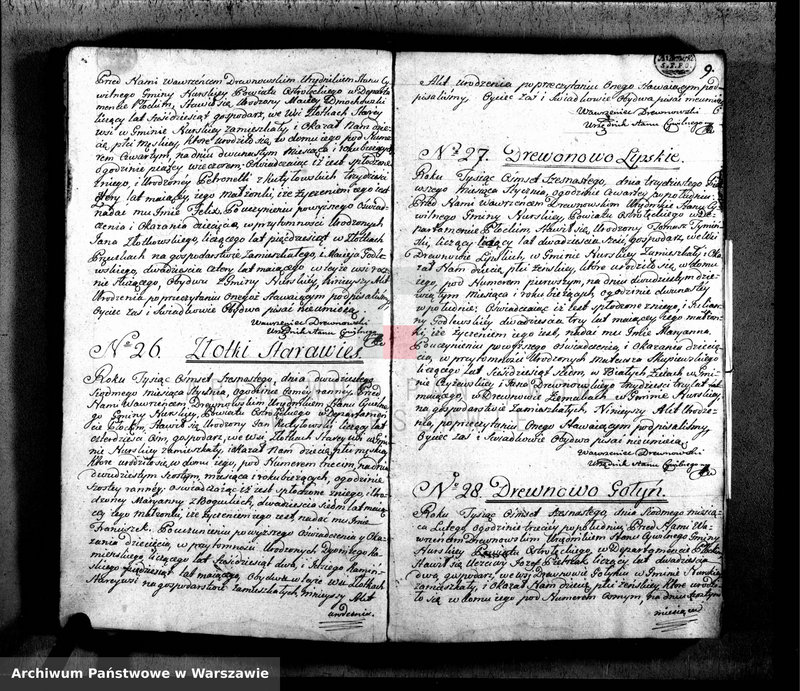 Przed Nami Wawrzeńcem Drewnowskim Urzędnikiem Stanu Cy
wilnego Gminy Nurskiey Powiatu Ostrołęckiego w Departa
mencie Płockim, Stawił się Urodzony Maciey Dmochowski
liczący lat sześćdziesiąt gospodarz, we Wsi Złotkach Starey
wsi w Gminie Nurskiey zamieszkały i okazał Nam dzie
cię płci męskiey, które urodziło się w domu iego pod Nume
rem Czwartym, na dniu dwunastym miesiąca i roku bieżących
ogodzinie piątey wieczorem, oświadczaiąc iż iest spłodzone
zniego, i Urodzoney Petronelli z Kutyłowskich trzydzieści
cztery lat maiącey, iego małżonki, iże życzeniem iego iest
nadać mu Imie Felix. Po uczynieniu powyższego Oświad
czenia i okazania dziecięcia, w przytomności Urodzonych
Jana Złotkowskiego, liczącego lat pięćdziesiąt w Złotkach
na gospodarstwie zamieszkałego, i Macieja Godle
wskiego, dwadzieścia cztery lat maiącego w teyże wsi
służącego, obydwu z Gminy Nurskiey, ninieyszy Akt
Urodzenia po przeczytaniu onegoż Stawaiącym podpisaliśmy,
Oyciec zaś i Świadkowie obydwa pisać nieumieią
Wawrzeniec Drewnowski
Urzędnik Stanu Cywilnego
No 26. Złotki Starawieś
Roku Tysiąc Ośmset Szesnastego, dnia dwudziestego
siodmego miesiąca Stycznia, ogodzinie osmey ranney. Przed
Nami Wawrzeńcem Drewnowskim Urzędnikiem Stanu Cywilne
go Gminy Nurskiey, Powiatu Ostrołęckiego w Departamen
cie Płockim, Stawił się Urodzony Jan Kutyłowski, liczący lat
czterdzieści osm, gospodarz, we wsi Złotkach Starey wsi w Gmi
nie Nurskiey zamieszkały, i okazał Nam dziecię, płci męskiey,
które urodziło się w domu iego, pod Numerem trzecim, na dniu
dwudziestym szostym, miesiąca i roku bieżących, ogodzinie
szostey ranney; oświadczaiąc iż iest spłodzone zniego, i Uro
dzoney Maryanny z Boguckich, dwadzieścia siedm lat maią
cey iego małżonki, iże życzeniem iego iest, nadać mu Imie
Franciszek. Po uczynieniu powyższego Oświadczenia y oka
zania dziecięcia, w przytomności Urodzonych Dyonizego Ka
mieńskiego liczącego lat sześćdziesiąt dwa, i Jerzego Kamiń
skiego pięćdziesiąt lat maiącego, obydwu w teyże wsi Złotkach
Stareywsi na gospodarstwie zamieszkałych, ninieyszy Akt
urodzenia
9.
Akt urodzenia po przeczytaniu Onego Stawaiącym pod
pisaliśmy. Oyciec zaś i Świadkowie obydwa pisać nieumieią
Wawrzeniec Drewnowski
Urzędnik Stanu Cywilnego
No 27. Drewnowo Lipskie.
Roku Tysiąc Ośmset Szesnastego, dnia trzydziestego pier
wszego miesiąca Stycznia, ogodzinie czwartey po południu.
Przed Nami Wawrzeńcem Drewnowskim Urzędnikiem Stanu Cy
wilnego Gminy Nurskiey, Powiatu Ostrołęckiego w De
partamencie Płockim, Stawił się Urodzony Tomasz Tymiń
ski, liczący lat dwadzieścia sześć, gospodarz, we Wsi
Drewnowie Lipskich, w Gminie Nurskiey zamieszkały i oka
zał Nam dziecię płci żeńskiey, które urodziło się w domu
iego, pod Numerem pierwszym, na dniu dwudziestym dzie
wiątym miesiąca i roku bieżących, ogodzinie dwunastey
w południe; Oświadczaiąc iż iest spłodzone zniego, i Julian
ny Godlewskiey dwadzieścia trzy lat maiącey, iego małżon
ki, iże życzeniem iego iest, nadać mu Imie Maryanna.
Po uczynieniu powyższego oświadczenia, i okazaniu dziecię
cia, w przytomości Urodzonych Mateusza Skupiewskiego
liczącego lat sześćdziesiąt siedm, w Białych Zalach w Gmi
nie Czyżewskiey i Jana Drewnowskiego trzydzieści trzy lat
maiącego, w Drewnowie Ziemakach w Gminie Nurskiey,
na gospodarstwie zamieszkałych. Ninieyszy Akt Urodze
nia, po przeczytaniu Onego Stawaiącym podpisaliśmy,
Oyciec zaś i Świadkowie obydwa pisać nieumieią.
Wawrzeniec Drewnowski
Urzędnik Stanu Cywilnego
No 28. Drewnowo Gołyń.
Roku Tysiąc Ośmset Szesnastego, dnia siodmego miesią
ca Lutego, ogodzinie trzeciy po południu, Przed Nami Wa
wrzeńcem Drewnowskim Urzędnikiem Stanu Cywilnego Gminy
Nurskiey Powiatu Ostrołęckiego, w Departamencie Płockim
Stawił się Uczciwy Józef Pietrzak, liczący lat dwadzieścia
dwa, gospodarz, we wsi Drewnowie Gołyniu, w Gminie Nurskiey
zamieszkały, i okazał Nam dziecię płci żeńskiey, które urodzi
ło się w domu iego pod Numerem osmym, na dniu szostym
miesiąca
Archiwum Państwowe w Warszawie